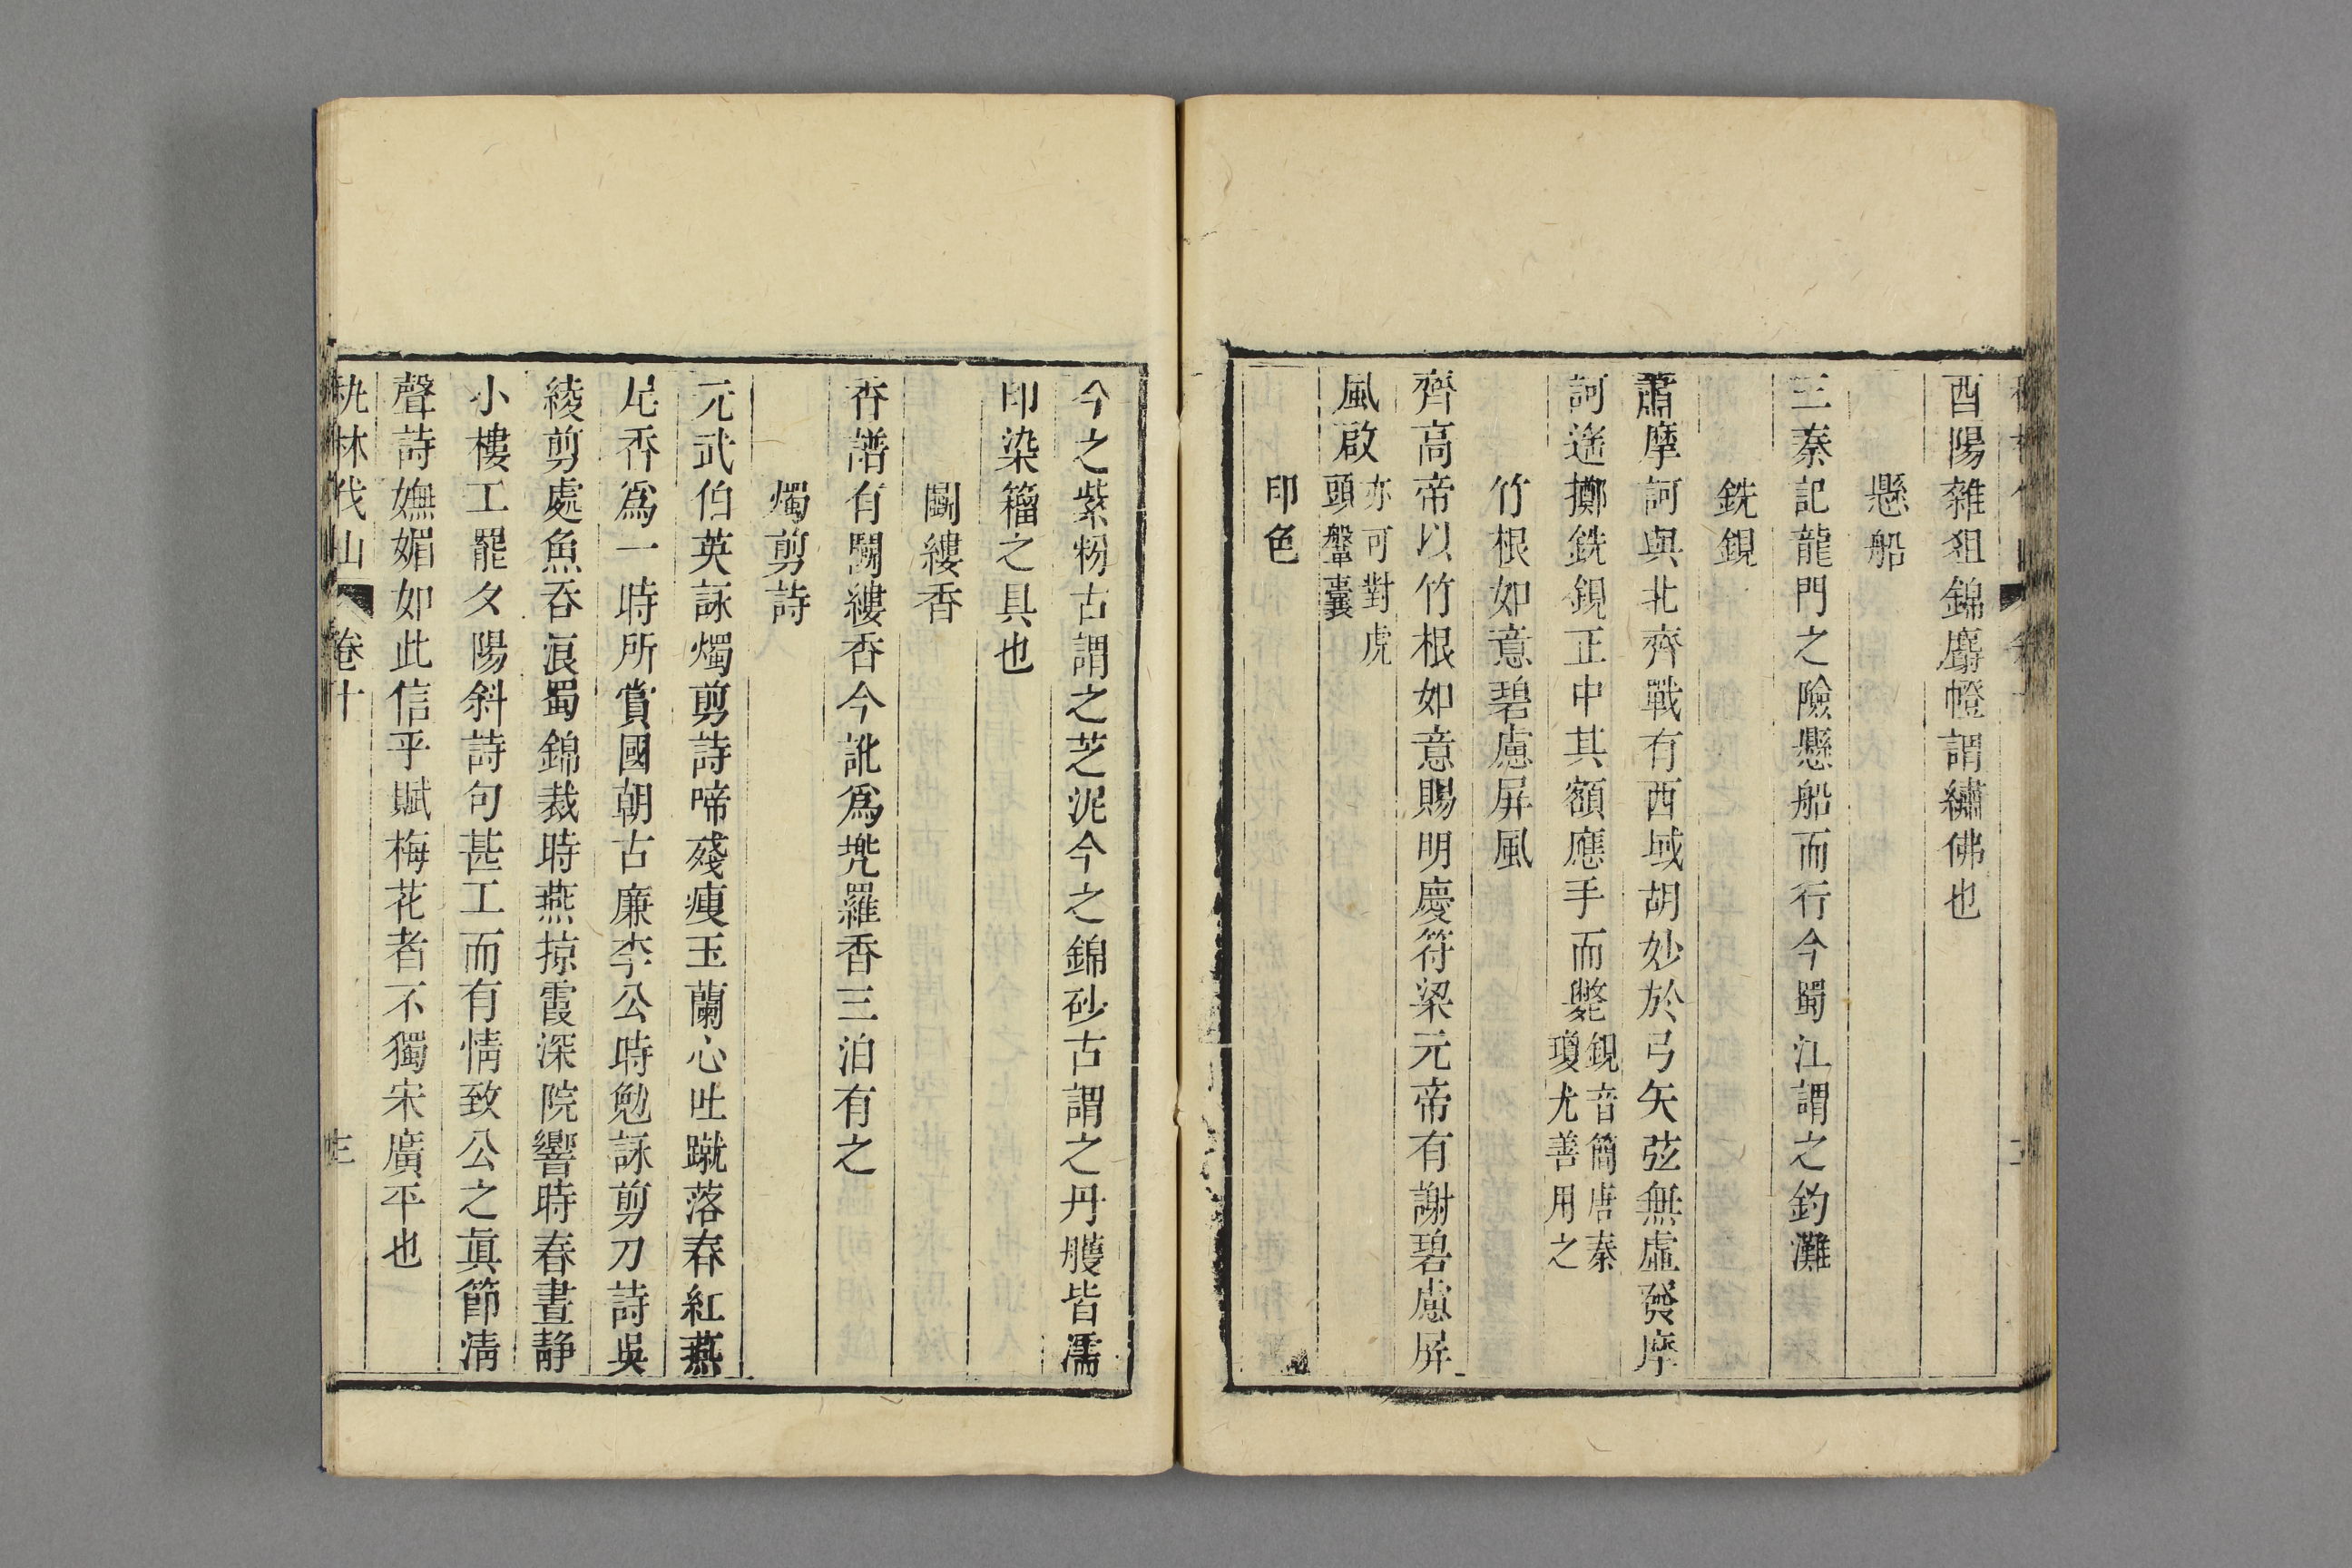 酉陽雜狙錦麝幰謂繡佛也
懸船
三秦記龍門之險懸船而行今蜀江謂之釣灘
銑鋧
蕭摩訶與北齊戰有西域胡妙於弓矢弦無虛發摩
訶遙擲銑鋧正中其額應手而斃鋧音簡唐秦瓊尤善用之
竹根如意碧慮屏風
齊高帝以竹根如意賜明慶符梁元帝有謝碧慮屏
風啟亦可對虎頭鞶囊
印色
今之紫粉古謂之芝泥今之錦砂古謂之丹雘皆濡
印染籀之具也
鬭縷香
香譜有鬭縷香今訛爲兠羅香三泊有之
燭剪詩
元武伯英詠燭剪詩啼殘痩玉蘭心吐蹴落春紅燕
尾香爲一時所賞國朝古廉李公時勉詠剪刀詩吳
綾剪處魚吞浪蜀錦裁時燕掠霞深院響時春晝静
小樓工罷夕陽斜詩句甚工而有情致公之眞節清
聲詩嫵媚如此信乎賦梅花者不獨宋廣平也
升林伐山 卷十